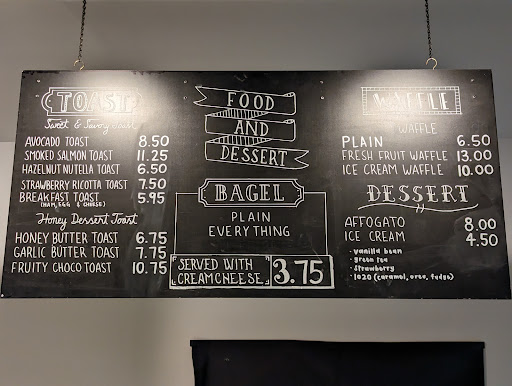 TOAST
Sweet & Savory Toast
AVOCADO TOAST 8.50
SMOKED SALMON TOAST 11.25
HAZELNUT NUTELLA TOAST 6.50
STRAWBERRY RICOTTA TOAST 7.50
BREAKFAST TOAST 5.95
(HAM, EGG & CHEESE)
Honey Dessert Toast
HONEY BUTTER TOAST 6.75
GARLIC BUTTER TOAST 7.75
FRUITY CHOCO TOAST 10.75
FOOD
AND
DESSERT
BAGEL
PLAIN
EVERYTHING
SERVED WITH
CREAMCHEESE
3.75
WAFFLE
WAFFLE
PLAIN 6.50
FRESH FRUIT WAFFLE 13.00
ICE CREAM WAFFLE 10.00
DESSERT
AFFOGATO 8.00
ICE CREAM 4.50
- vanilla bean
- green tea
- strawberry
- 1020 (caramel, oreo, fudge)